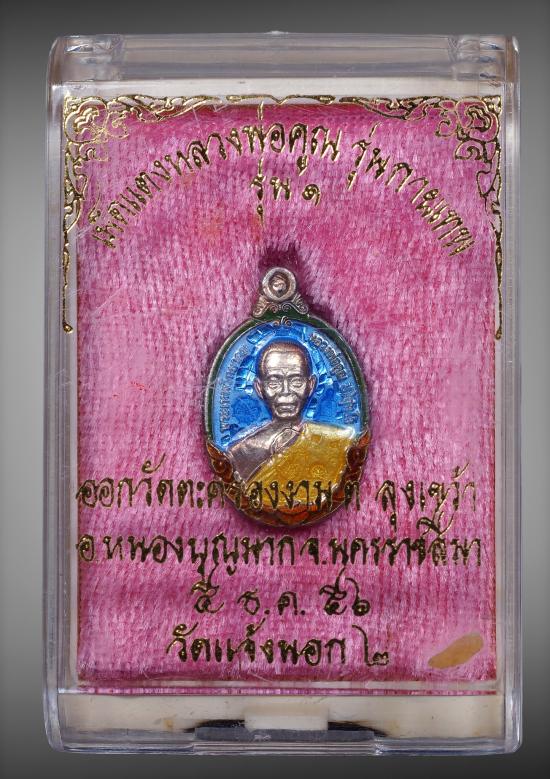 เม็ดแตงหลวงพ่อคูณ รุ่นกายเทพ
รุ่น ๑
ออกวัดตะคร้องงาม ต ลุงเขว้า
อ.หนองบุญมาก จ.นครราชสีมา
๕ ธ.ค. ๕๖
วัดแจ้งนอก ๒